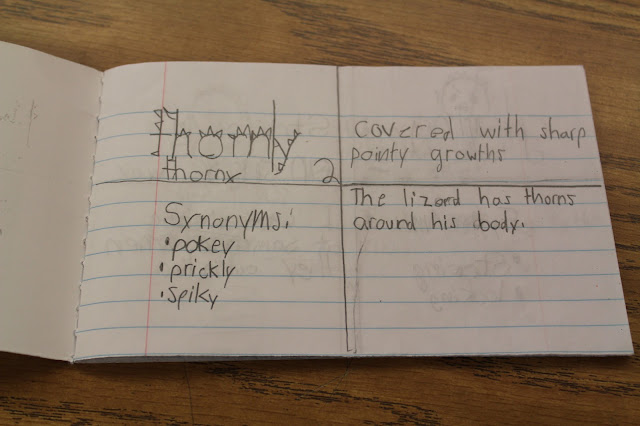 Thorny
thorny
2
covered with sharp
pointy growths
Synonyms:
•pokey
•prickly
•spiky
The lizard has thorns
around his body.